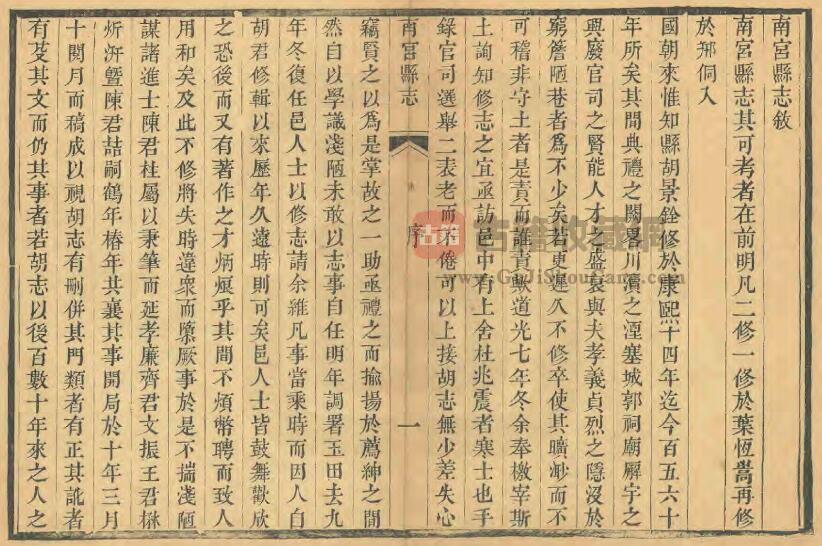 南宮縣志敘
南宮縣志其可考者在前明凡二修一修於葉恆嵩再修
於邢侗入
國朝來惟知縣胡景銓修於康熙十四年迄今百五六十
年所矣其間典禮之闕畧川瀆之湮塞城郭祠廟廨宇之
與廢官司之賢能人才之盛衰與夫孝義貞烈之隱沒於
窮簷陋巷者為不少矣若更遲久不修卒使其曠渺而不
可稽非守土者是責而誰責歟道光七年冬余奉檄宰斯
土詢知修志之宜亟訪邑中有上舍杜兆震者寒士也手
錄官司選舉二表老而不倦可以上接胡志無少差失心
南宮縣志
序
一
竊賢之以為是掌故之一助亟禮之而揄揚於薦紳之間
然自以學識淺陋未敢以志事自任明年調署玉田去九
年冬復任邑人士以修志請余維凡事當乘時而因人自
胡君修輯以來歷年久遠時則可矣邑人士皆鼓舞歡欣
之恐後而又有著作之才炳烺乎其間不煩幣聘而致人
用和矣及此不修將失時違衆而隳厥事於是不揣淺陋
謀諸進士陳君柱屬以秉筆而延孝廉齊君文振王君楙
炘汧暨陳君喆嗣鶴年椿年共襄其事開局於十年三月
十閱月而稿成以視胡志有刪併其門類者有正其訛者
有芟其文而仍其事者若胡志以後百數十年來之人之
古籍收藏網
www.GuJiShouCang.com
古籍